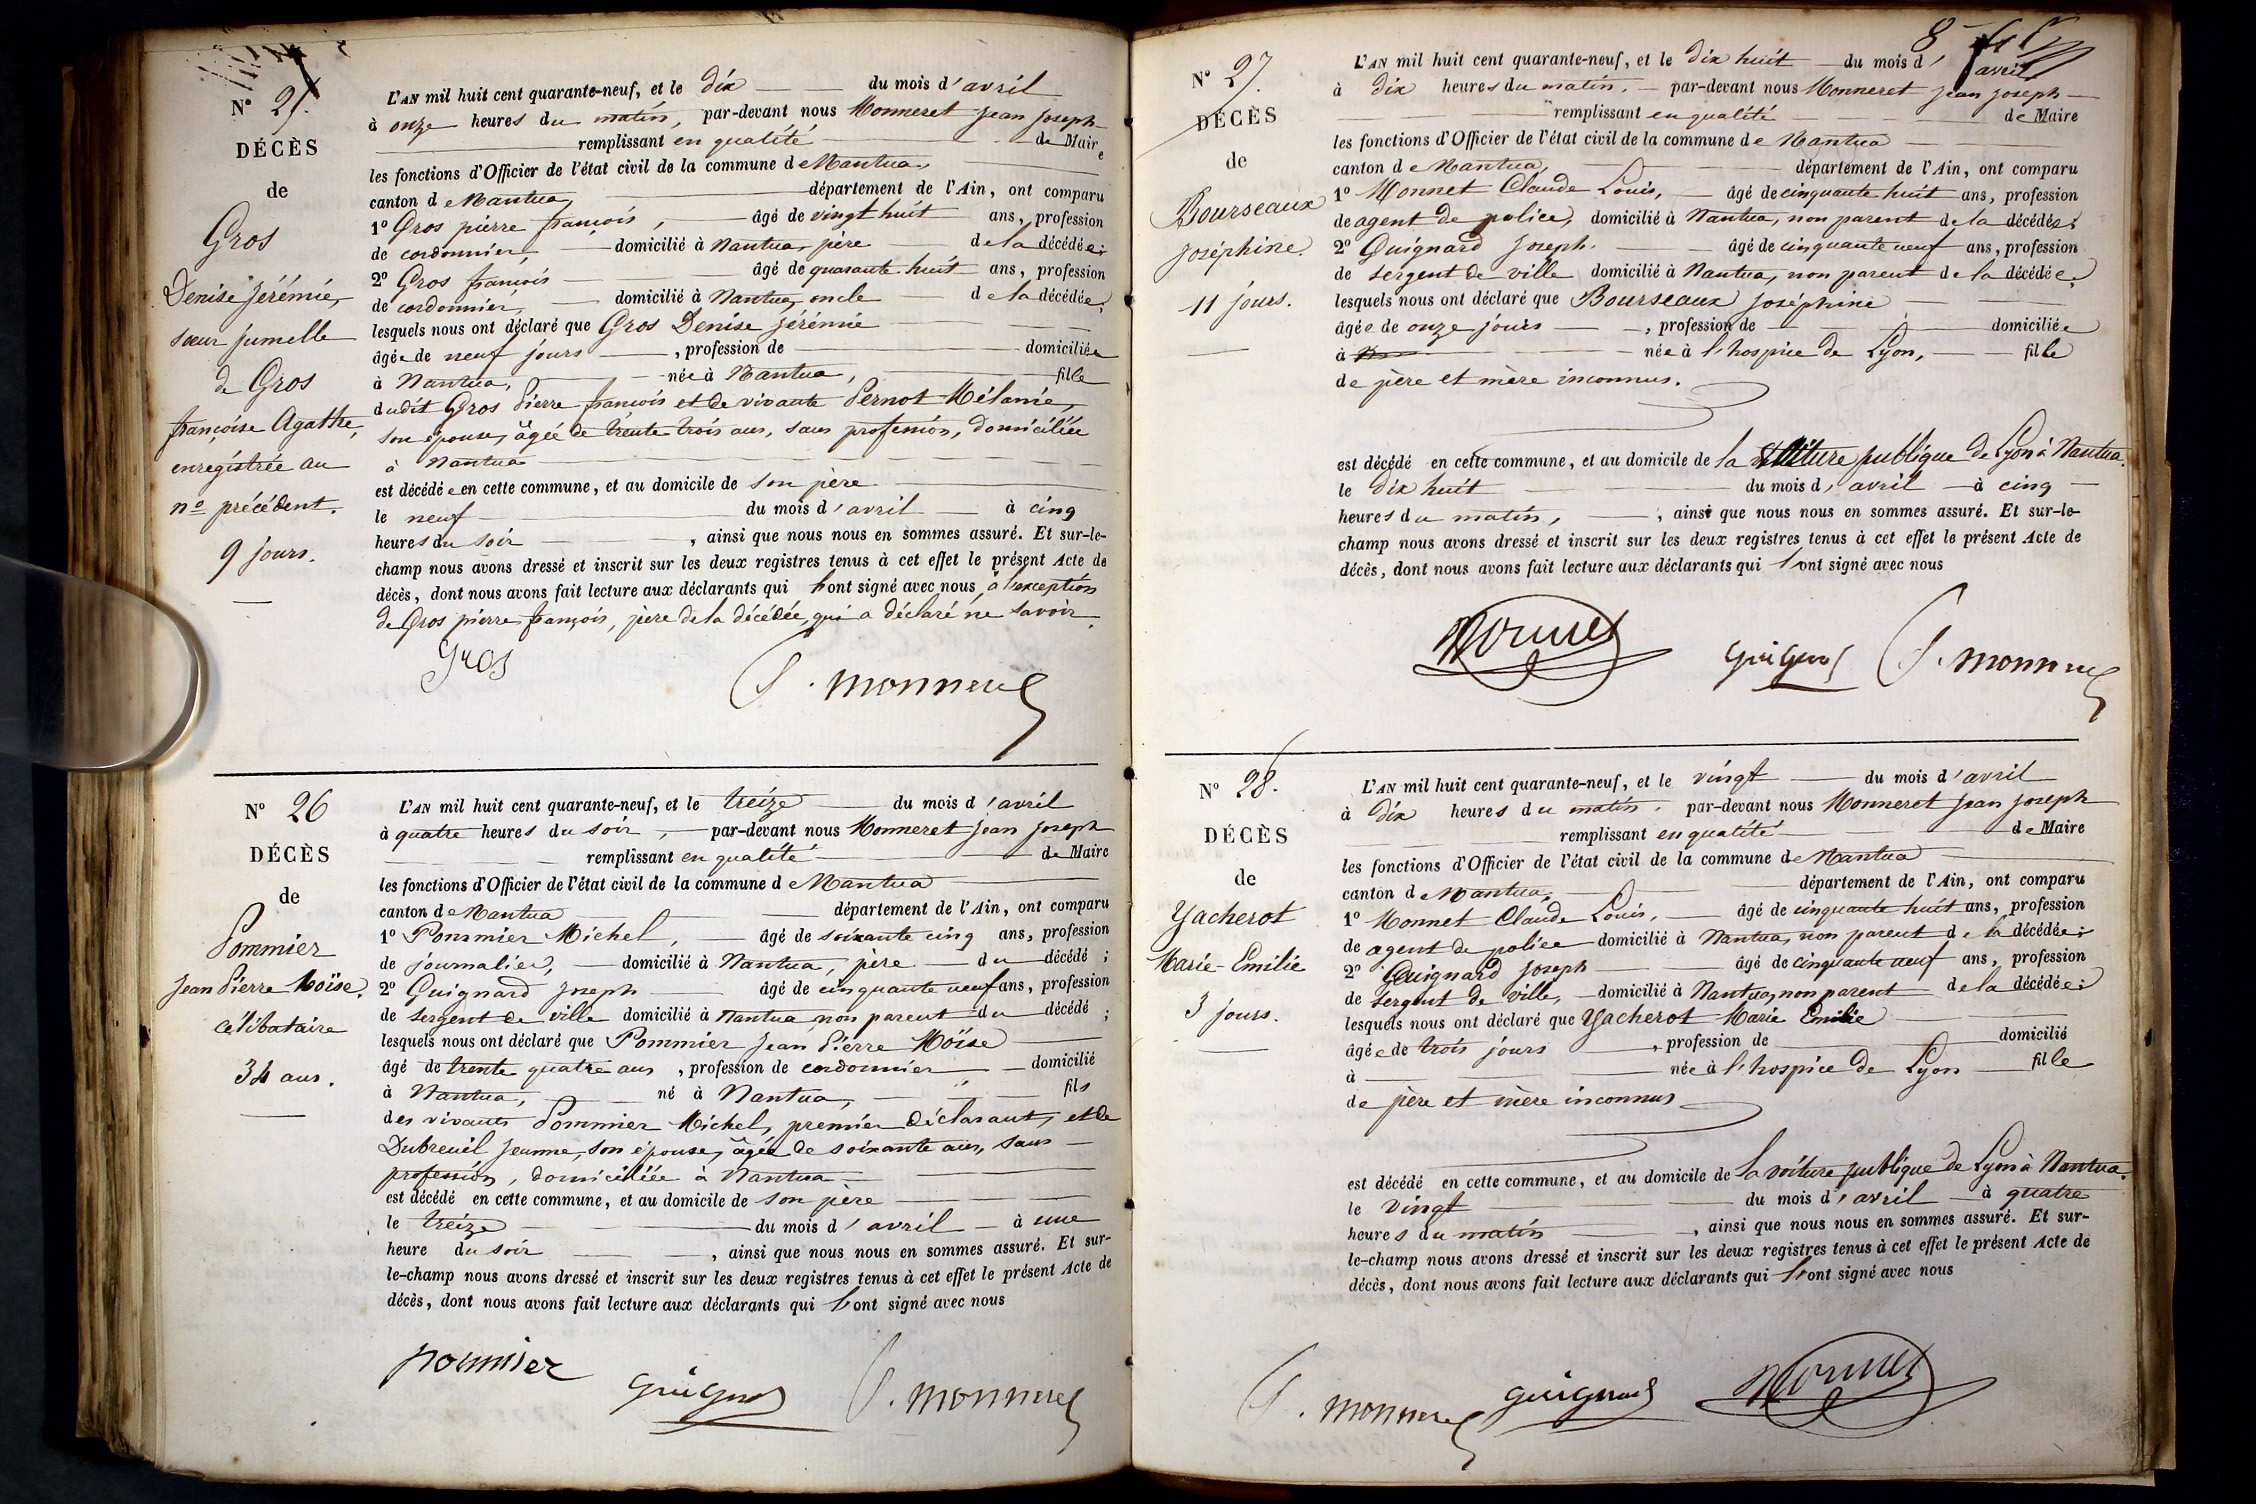 N° 25.
DÉCÈS
de
Gros
Denise Jérémie,
sœur jumelle
de Gros
françoise Agathe,
enregistrée au
n° précédent.
9 jours.
L'AN mil huit cent quarante-neuf, et le dix du mois d'avril
à onze heures du matin, par-devant nous Monneret Jean Joseph
remplissant en qualité de Maire
les fonctions d'Officier de l'état civil de la commune de Nantua,
canton de Nantua, département de l'Ain, ont comparu
1° Gros pierre françois, âgé de vingt huit ans, profession
de cordonnier, domicilié à Nantua, père de la décédée;
2° Gros françois âgé de quarante huit ans, profession
de cordonnier, domicilié à Nantua, oncle de la décédée;
lesquels nous ont déclaré que Gros Denise Jérémie
âgée de neuf jours, profession de domiciliée
à Nantua, née à Nantua, fille
dudit Gros Pierre françois et de vivante Pernot Mélanie,
son épouse, âgée de trente trois ans, sans profession, domiciliée
à Nantua
est décédée en cette commune, et au domicile de son père
le neuf du mois d'avril à cinq
heures du soir, ainsi que nous nous en sommes assuré. Et sur-le-
champ nous avons dressé et inscrit sur les deux registres tenus à cet effet le présent Acte de
décès, dont nous avons fait lecture aux déclarants qui l'ont signé avec nous, à l'exception
de Gros pierre françois, père de la décédée, qui a déclaré ne savoir.
Gros
J. Monneret
N° 26
DÉCÈS
de
Pommier
Jean Pierre Moïse.
célibataire
34 ans.
L'AN mil huit cent quarante-neuf, et le treize du mois d'avril
à quatre heures du soir, par-devant nous Monneret Jean Joseph
remplissant en qualité de Maire
les fonctions d'Officier de l'état civil de la commune de Nantua
canton de Nantua département de l'Ain, ont comparu
1° Pommier Michel, âgé de soixante cinq ans, profession
de journalier, domicilié à Nantua, père du décédé;
2° Guignard Joseph âgé de cinquante neuf ans, profession
de sergent de ville domicilié à Nantua non parent du décédé;
lesquels nous ont déclaré que Pommier Jean Pierre Moïse
âgé de trente quatre ans, profession de cordonnier domicilié
à Nantua, né à Nantua, fils
des vivants Pommier Michel, premier déclarant, et de
Dubreuil Jeanne, son épouse, âgée de soixante ans, sans
profession, domiciliée à Nantua
est décédé en cette commune, et au domicile de son père
le treize du mois d'avril à une
heure du soir, ainsi que nous nous en sommes assuré. Et sur-
le-champ nous avons dressé et inscrit sur les deux registres tenus à cet effet le présent Acte de
décès, dont nous avons fait lecture aux déclarants qui l'ont signé avec nous
pommier
Guignard
J. Monneret
8
N° 27.
DÉCÈS
de
Bourseaux
Joséphine.
11 jours.
L'AN mil huit cent quarante-neuf, et le dix huit du mois d'avril
à dix heures du matin, par-devant nous Monneret Jean Joseph
remplissant en qualité de Maire
les fonctions d'Officier de l'état civil de la commune de Nantua
canton de Nantua, département de l'Ain, ont comparu
1° Monnet Claude Louis, âgé de cinquante huit ans, profession
de agent de police, domicilié à Nantua, non parent de la décédée;
2° Guignard Joseph. âgé de cinquante neuf ans, profession
de sergent de ville domicilié à Nantua, non parent de la décédée;
lesquels nous ont déclaré que Bourseaux Joséphine
âgée de onze jours, profession de domiciliée
à née à l'hospice de Lyon, fille
de père et mère inconnus.
est décédé en cette commune, et au domicile de la voiture publique de Lyon à Nantua.
le dix huit du mois d'avril à cinq
heures du matin, ainsi que nous nous en sommes assuré. Et sur-le-
champ nous avons dressé et inscrit sur les deux registres tenus à cet effet le présent Acte de
décès, dont nous avons fait lecture aux déclarants qui l'ont signé avec nous
Monnet
Guignard
J. Monneret
N° 28.
DÉCÈS
de
Yacherot
Marie-Emilie
3 jours.
L'AN mil huit cent quarante-neuf, et le vingt du mois d'avril
à dix heures du matin, par-devant nous Monneret Jean Joseph
remplissant en qualité de Maire
les fonctions d'Officier de l'état civil de la commune de Nantua
canton de Nantua, département de l'Ain, ont comparu
1° Monnet Claude Louis, âgé de cinquante huit ans, profession
de agent de police domicilié à Nantua, non parent de la décédée;
2° Guignard Joseph âgé de cinquante neuf ans, profession
de sergent de ville, domicilié à Nantua, non parent de la décédée;
lesquels nous ont déclaré que Yacherot Marie Emilie
âgée de trois jours, profession de domicilié
à née à l'hospice de Lyon fille
de père et mère inconnus
est décédé en cette commune, et au domicile de la voiture publique de Lyon à Nantua.
le vingt du mois d'avril à quatre
heures du matin, ainsi que nous nous en sommes assuré. Et sur-
le-champ nous avons dressé et inscrit sur les deux registres tenus à cet effet le présent Acte de
décès, dont nous avons fait lecture aux déclarants qui l'ont signé avec nous
J. Monneret
Guignard
Monnet